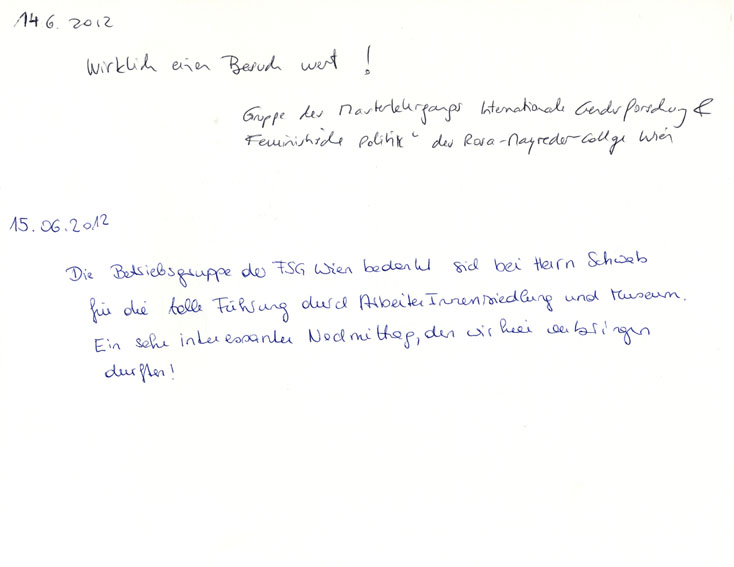 14 6. 2012
Wirklich einen Besuch wert!
Gruppe des Masterlehrgangs Internationale Genderforschung &
Feministische Politik“ des Rosa-Mayreder-College Wien
15.06.2012
Die Betriebsgruppe der FSG Wien bedankt sich bei Herrn Schwab
für die tolle Führung durch ArbeiterInnensiedlung und Museum.
Ein sehr interessanter Nachmittag, den wir hier verbringen
durften!